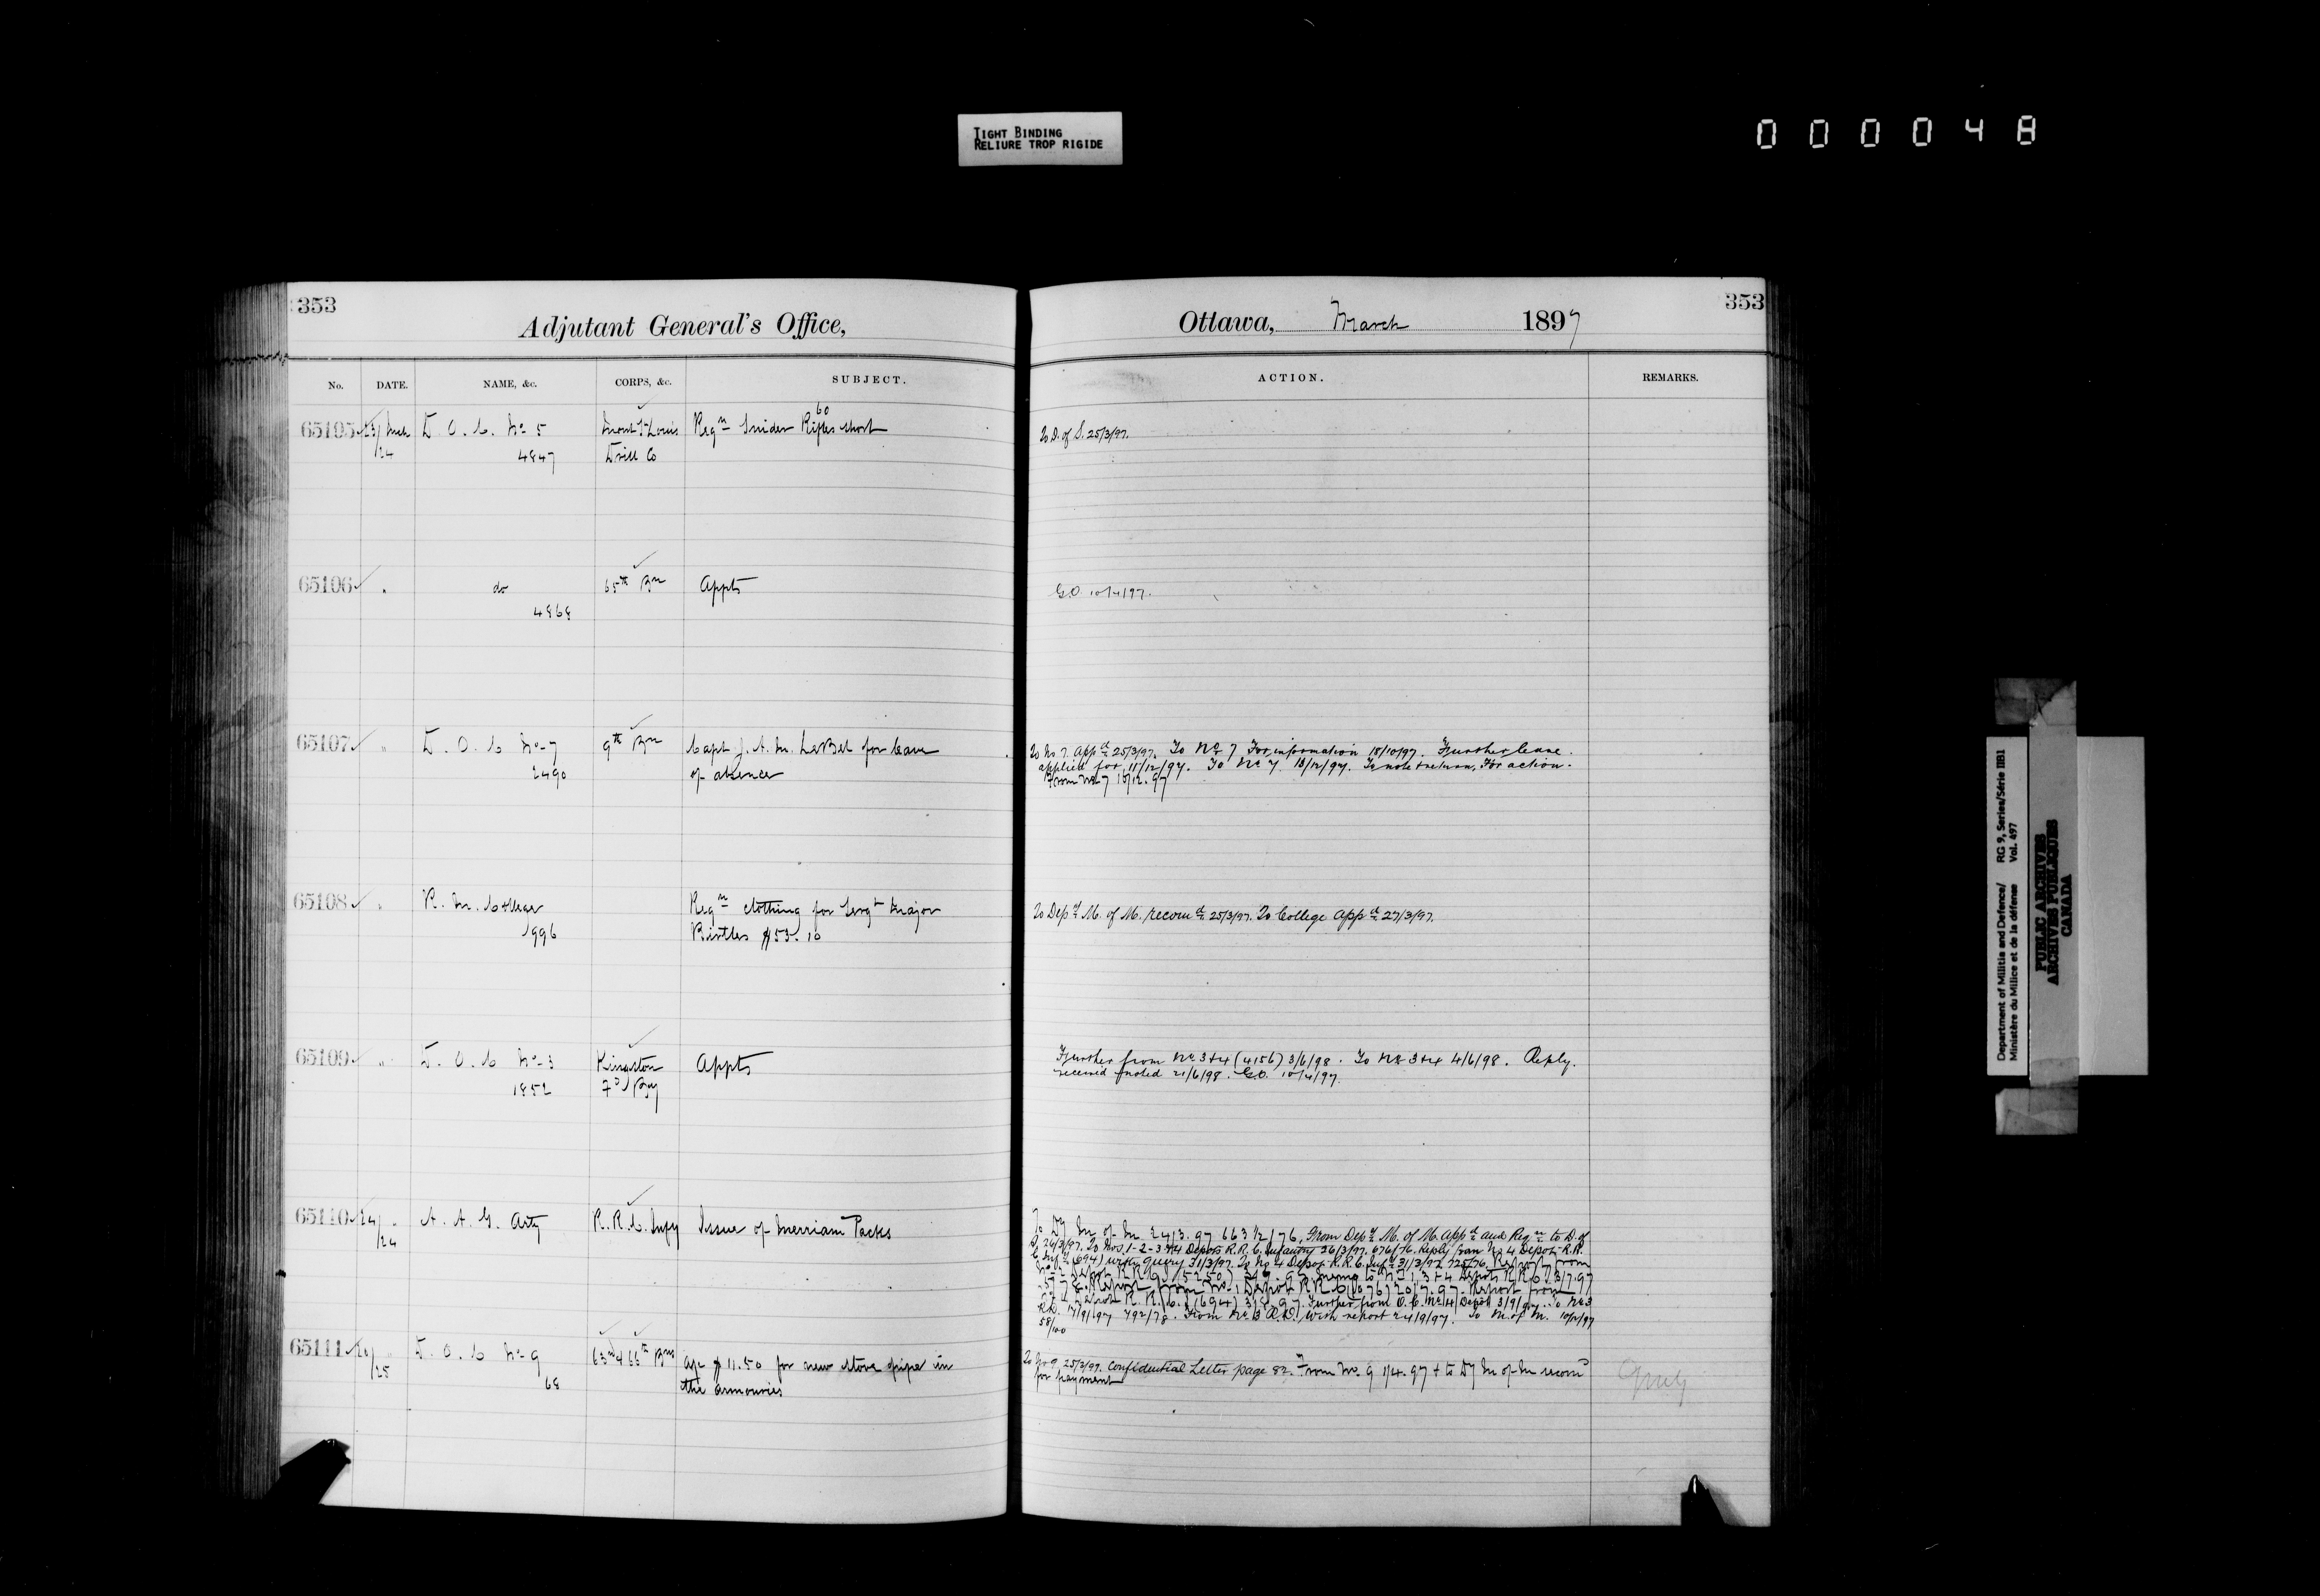 TIGHT BINDING
RELIURE TROP RIGIDE
000048
353
Adjutant General's Office,
Ottawa, March 1897
353
No. DATE. NAME, &c. CORPS, &c. SUBJECT. ACTION. REMARKS.
65105 23/ Mch D. O. C. No 5 Mont St Louis Reqn Snider Rifles short 60
/24 4847 Drill Co
To D. of S. 25/3/97.
65106 " do 65th Bn Appts
4868
G.O. 10/4/97.
65107 " D. O. C No 7 9th Bn Capt J. A. M. LeBel for leave
2490 of absence
To No. 7. Appd 25/3/97. To No 7 For information 18/10/97. Further leave
applied for 11/12/97. To No 7. 18/12/97. To note & return, For action.
From No 7 15/12.97
65108 " R. M. College Reqn clothing for Sergt Major
1996 Birtles $53.10
To Dept M. of M. recomd 25/3/97. To College appd 27/3/97.
65109 " D. O. C No 3 Kingston Appts
1852 Fd Bty
Further from No 3 & 4 (4156) 3/6/98. To No 3 & 4 4/6/98. Reply
received & noted 21/6/98. G.O. 10/4/97.
65110 24/ " A. A. G. Arty R. R. C. Infy Issue of Merriam Packs
/24
To Dy M of M. 24/3.97 663 1/2/76, From Dept M. of M. Appd and Reqn to D. of
S. 26/3/97. To Nos. 1-2-3 & 4 Depots R.R.C. Infantry 26/3/97. 676/76. Reply from No 4 Depot R.R.
C. Infy (694) with query 31/3/97. To No 4 Depot R.R.C. Infy 31/3/97 725/76. Report from
R.D. 17/9/97 792/78. From No 3 R.D. with report 24/9/97. To M. of M. 10/11/97
58/100
65111 20/ " D. O. C No 9 63rd & 66th Bns a/c $11.50 for new stove pipes in
/25 68 the armouries
To No 9 25/3/97. Confidential Letter page 82. From No. 9 1/4.97 & to Dy M of M recomd
for payment
Department of Militia and Defence/ RG 9, Series/Série IIB1
Ministère du Milice et de la défense Vol. 497
PUBLIC ARCHIVES
ARCHIVES PUBLIQUES
CANADA